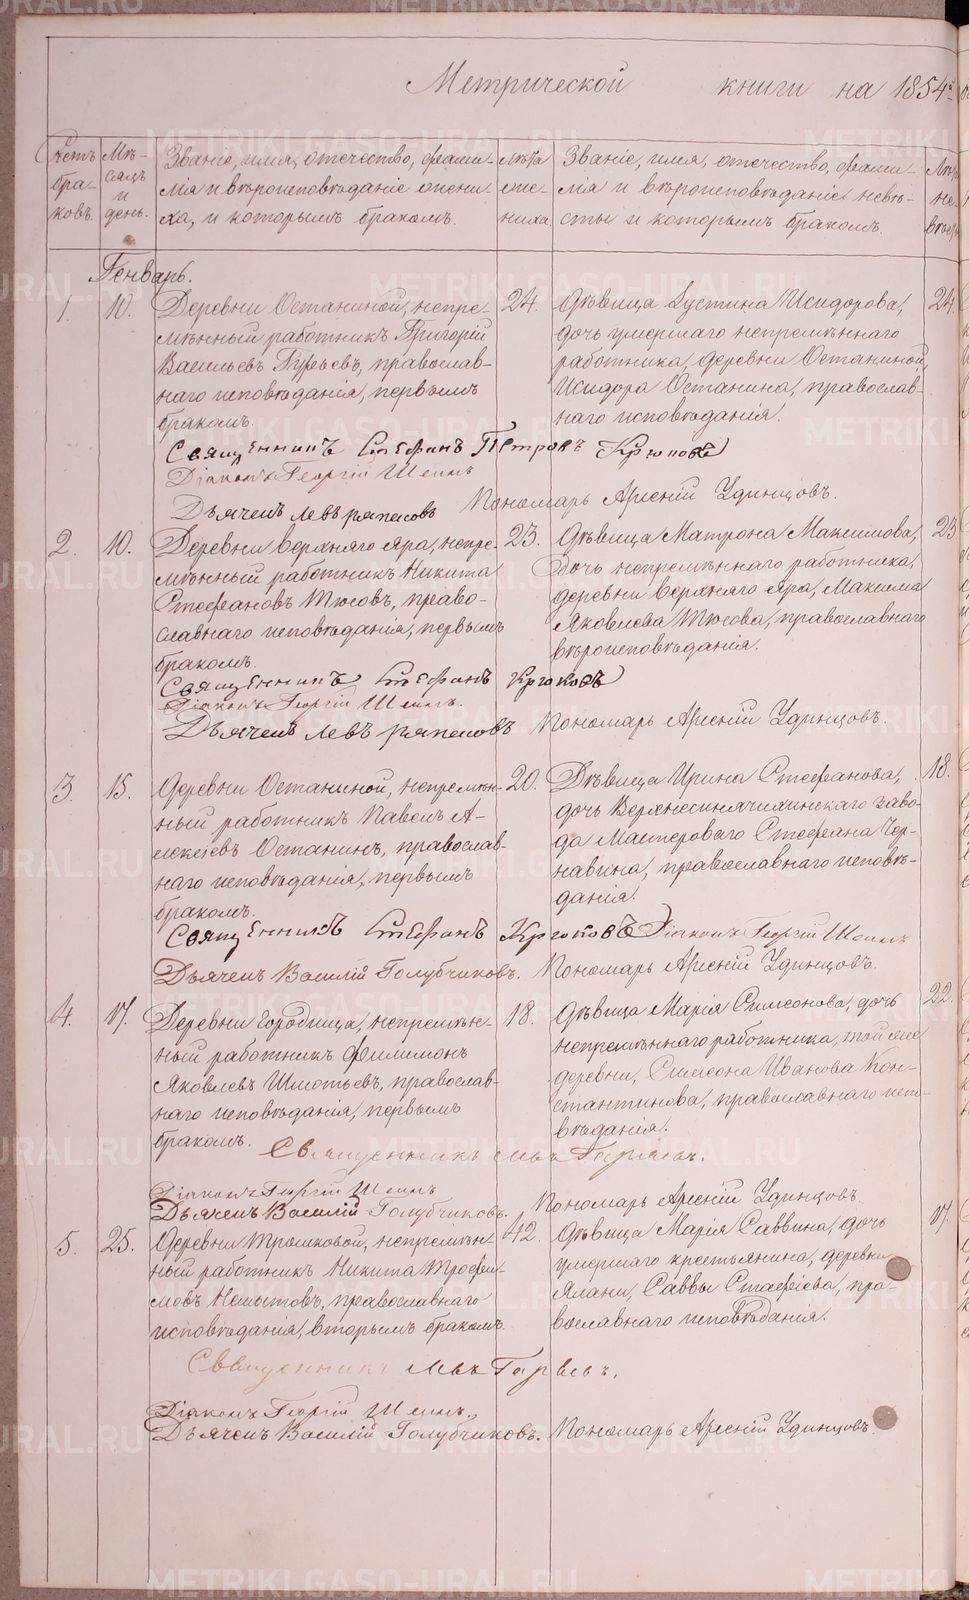 Метрической книги на 1854й
Счетъ браковъ.
Мѣсяцъ и день.
Званіе, имя, отечество, фамилія и вѣроисповѣданіе жениха, и которымъ бракомъ.
Лѣта жениха.
Званіе, имя, отечество, фамилія и вѣроисповѣданіе невѣсты и которымъ бракомъ.
Генварь.
1. 10.
Деревни Останиной, непре-
мѣнный работникъ Григорій
Васильевъ Гурьевъ, православ-
наго исповѣданія, первымъ
бракомъ.
24.
Дѣвица Іустина Исидорова,
дочь умершаго непремѣннаго
работника, деревни Останиной,
Исидора Останина, православ-
наго исповѣданія.
24.
Священникъ Стефанъ Петровъ Крюковъ
Діаконъ Георгій Шеинъ
Дьячекъ Левъ Ряпасовъ Пономарь Арсеній Удинцовъ.
2. 10.
Деревни Верхняго Яра, непре-
мѣнный работникъ Никита
Стефановъ Тюсовъ, право-
славнаго исповѣданія, первымъ
бракомъ.
23.
Дѣвица Матрона Максимова,
дочь непремѣннаго работника,
деревни Верхняго Яра, Максима
Яковлева Тюсова, православнаго
вѣроисповѣданія.
23
Священникъ Стефанъ Крюковъ
Діаконъ Георгій Шеинъ.
Дьячекъ Левъ Ряпасовъ Пономарь Арсеній Удинцовъ.
3. 15.
Деревни Останиной, непремѣн-
ный работникъ Павелъ А-
лексѣевъ Останинъ, православ-
наго исповѣданія, первымъ
бракомъ.
20.
Дѣвица Ирина Стефанова,
дочь Верхнесинячихинскаго заво-
да Мастероваго Стефана Чер-
навина, православнаго исповѣ-
данія.
18.
Священникъ Стефанъ Крюковъ Діаконъ Георгій Шеинъ
Дьячекъ Василій Голубчиковъ. Пономарь Арсеній Удинцовъ.
4. 17.
Деревни Городища, непремѣн-
ный работникъ Филимонъ
Яковлевъ Шмотьевъ, православ-
наго исповѣданія, первымъ
бракомъ.
18.
Дѣвица Марія Симеонова, дочь
непремѣннаго работника, той же
деревни, Симеона Иванова Кон-
стантинова, православнаго испо-
вѣданія.
22.
Священникъ
Діаконъ Георгій Шеинъ
Дьячекъ Василій Голубчиковъ. Пономарь Арсеній Удинцовъ.
5. 25.
Деревни Трошковой, непремѣн-
ный работникъ Никита Трофи-
мовъ православнаго
исповѣданія, вторымъ бракомъ.
42.
Дѣвица Марія Саввина, дочь
умершаго крестьянина, деревни
Ялани, Саввы Стафіева, пра-
вославнаго исповѣданія.
17.
Священникъ
Діаконъ Георгій Шеинъ.
Дьячекъ Василій Голубчиковъ. Пономарь Арсеній Удинцовъ.
METRIKI.GASO-URAL.RU